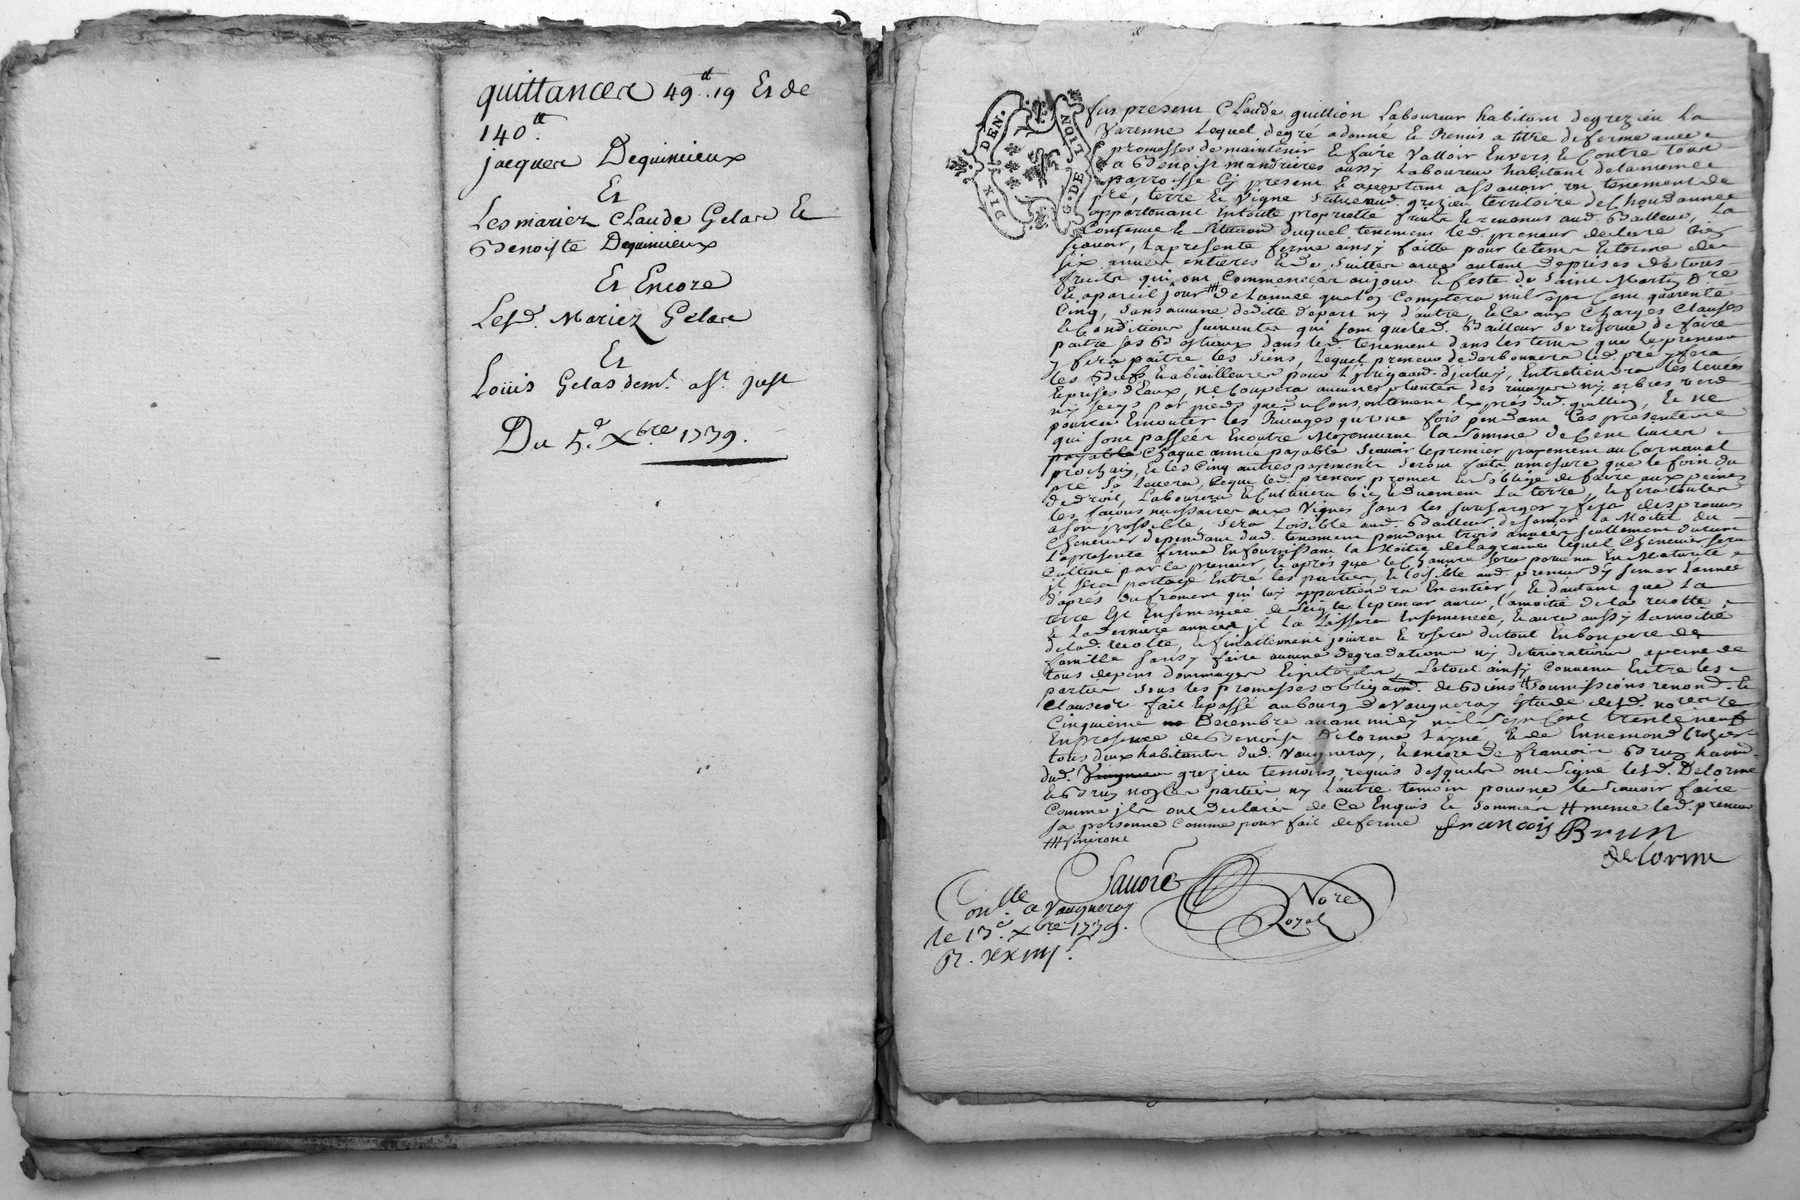 quittances 49ᵗᵗ..19 Et de
140ᵗᵗ.
jacques Dequinieux
Et
Les mariez Claude Gelas Et
Benoiste Dequinieux
Et Encore
Lesd. Mariez Gelas
Et
Loüis Gelas demt. a St. just
Du 5e. Xbre 1739.
G. DE LION DIX DEN.
fus present Claude guillion Laboureur habitant de grezieu La
Varenne Lequel de gré a donné Et Remis a titre de ferme avec
promesses de maintenir Et faire Valloir Envers Et Contre tous
a Benoist mandrieres aussy Laboureur habitant de la meme
parroisse Cy present Et acceptant assavoir un tenement de
pré, terre Et Vigne Situé aud. grezieu territoire de
appartenant En toute proprieté aud. Bailleur, La
Contenue Et Situation duquel tenement led. preneur declare bien
sçavoir, La presente ferme ainsy faitte pour le tems Et terme de
six années entieres Et de Suitte avec autant de prises de tous
fruits qui ont Commencées au jour Et feste de Saint Martin
Et a pareil jour de L'année qu'on Comptera mil sept Cent quarente
Cinq, Sans aucune deditte d'part ny d'autre, Et Ce aux Charges Clauses
Et Conditions suivantes qui sont que led. Bailleur se reserve de faire
paitre ses Bestiaux dans led. tenement dans les tems que le preneur
y fera paitre les siens, Lequel preneur led. pré y fera
les Biefs, Entretiendra les levées
Et prises d'Eaux, ne Coupera aucunes plantes des rivages ny arbres verds
ny secqs par pieds que du Consentement Exprés dud. guillion, Et ne
pourra Emonter les Rivages qu'une fois pendant Les presentes
qui sont passées En outre Moyennant la somme de Cent livres
payable Chaque année payable sçavoir le premier payement au Carnaval
prochain, Et les Cinq autres payements seront faits a mesure que le foin du
pré se Levera, Ce que led. preneur promet Et s'oblige de faire aux peines
de droit, Labourera Et Cultivera bien Et duement La terre, Et fera toutes
les façons necessaires aux Vignes sans les surcharger y fera des provins
a son possible, sera Loisible aud. Bailleur de semer La Moitié du
Chenevier dependant dud. tenement pendant trois années seullement durant
La presente ferme En fournissant la Moitié de la graine lequel Chenevier sera
Cultivé par le preneur, Et aprés que le Chanvre sera parvenu En Maturité
il sera partagé Entre les parties, Et loisible aud. preneur d'y semer L'année
d'aprés du froment qui luy appartiendra En entier, Et d'autant que La
terre Est Ensemencée de seigle le preneur aura la moitié de la recolte
Et La derniere année il La Laissera Ensemencée, Et aura aussy La moitié
de lad. recolte, Et finallement jouira Et usera du tout En bon pere de
famille sans y faire aucune degradation ny deterioration a peine de
tous depens dommages Et interets, Le tout ainsy Convenu Entre les
parties sous les promesses obligaons. de Biens soumissions renond. Et
Clauses fait Et passé au bourg de Vaugneray Etude dud. nore Le
Cinquieme Decembre avant midy mil sept Cent trente neuf
En presence de Benoist Delorme Layné, Et de Ennemond Crozier
tous deux habitants dud. Vaugneray, Et encore de francois Brun habitt.
dud. Vaugneray grezieu temoins requis desquels ont signé lesd. Delorme
Et Brun non les parties ny L'autre temoin pour ne le sçavoir faire
Comme ils ont declaré de Ce Enquis Et sommés # meme led. preneur
sa personne Comme pour fait de ferme
françois Brun
delorme
Savoré Nore Royal
Conllé a Vaugneray
le 13e. Xbre 1739.
R. xxiiijs.